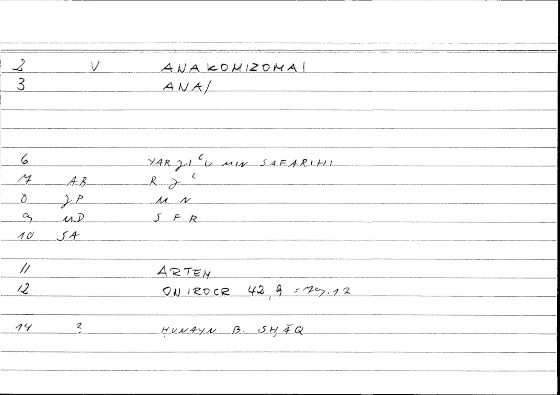 2 V ANAKOMIZOMAI
3 ANA/
6 YARǦIʿU MIN SAFARIHI
7 AB R Ǧ ʿ
8 ǦP M N
9 MD S F R
10 SA
11 ARTEM
12 ONIROCR 42,9 = 79,12
14 ? ḤUNAYN B. ISḤĀQ